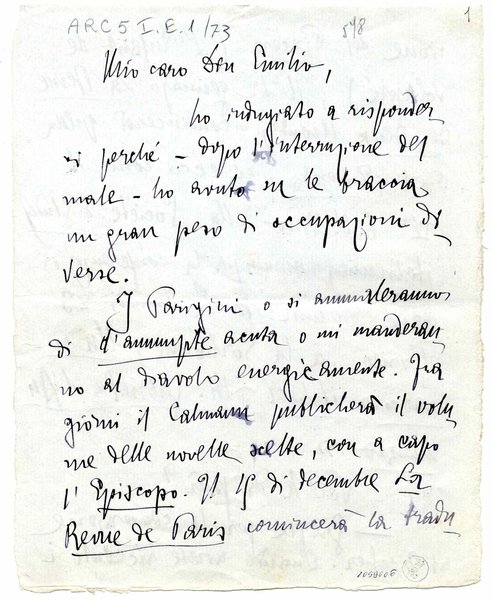 ARC 5 I.E.1/73
548
1
Mio caro Don Emilio,
ho indugiato a risponder
vi perché – dopo l'interruzione del
male – ho avuto su le braccia
un gran peso di occupazioni di
verse.
I Parigini o si ammaleranno
di d'annunzite acuta o mi manderan
no al diavolo energicamente. Fra
giorni il Calmann publicherà il volu
me delle novelle scelte, con a capo
l'Episcopo. Il 15 di decembre La
Revue de Paris comincerà la tradu
1058006